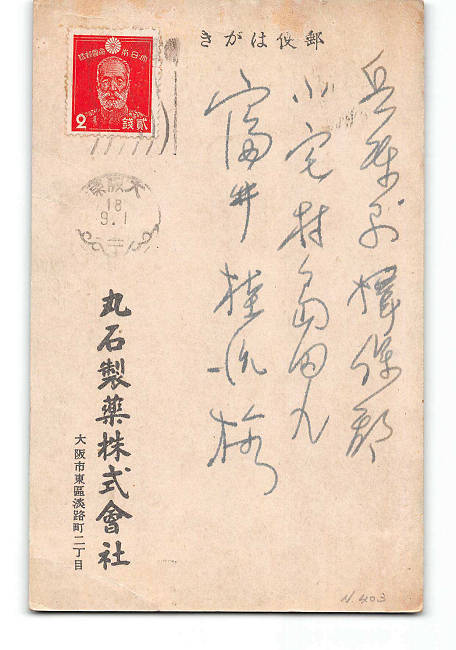 郵便はがき
大日本帝國郵便
2
貳錢
大阪東
18
9.1
兵庫縣揖保郡
小宅村島田九
富井様
丸石製薬株式會社
大阪市東區淡路町二丁目
N.403